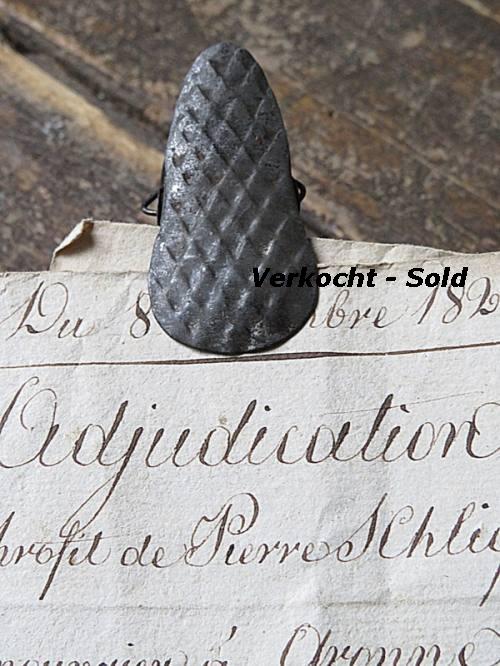 Verkocht - Sold
Du 8 bre 182
Adjudication
profit de Pierre Schli
à